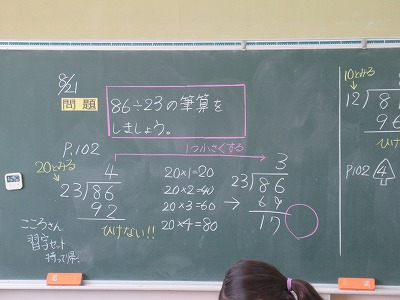 8/21
問題
86÷23の筆算を
しましょう。
P.102
1つ小さくする
20とみる
4
23)86
92
ひけない!!
20×1=20
20×2=40
20×3=60
20×4=80
3
23)86
→ 69
17
こころさん
習字セット
持って帰
10とみる
12)8
96
ひけ
P.102 4